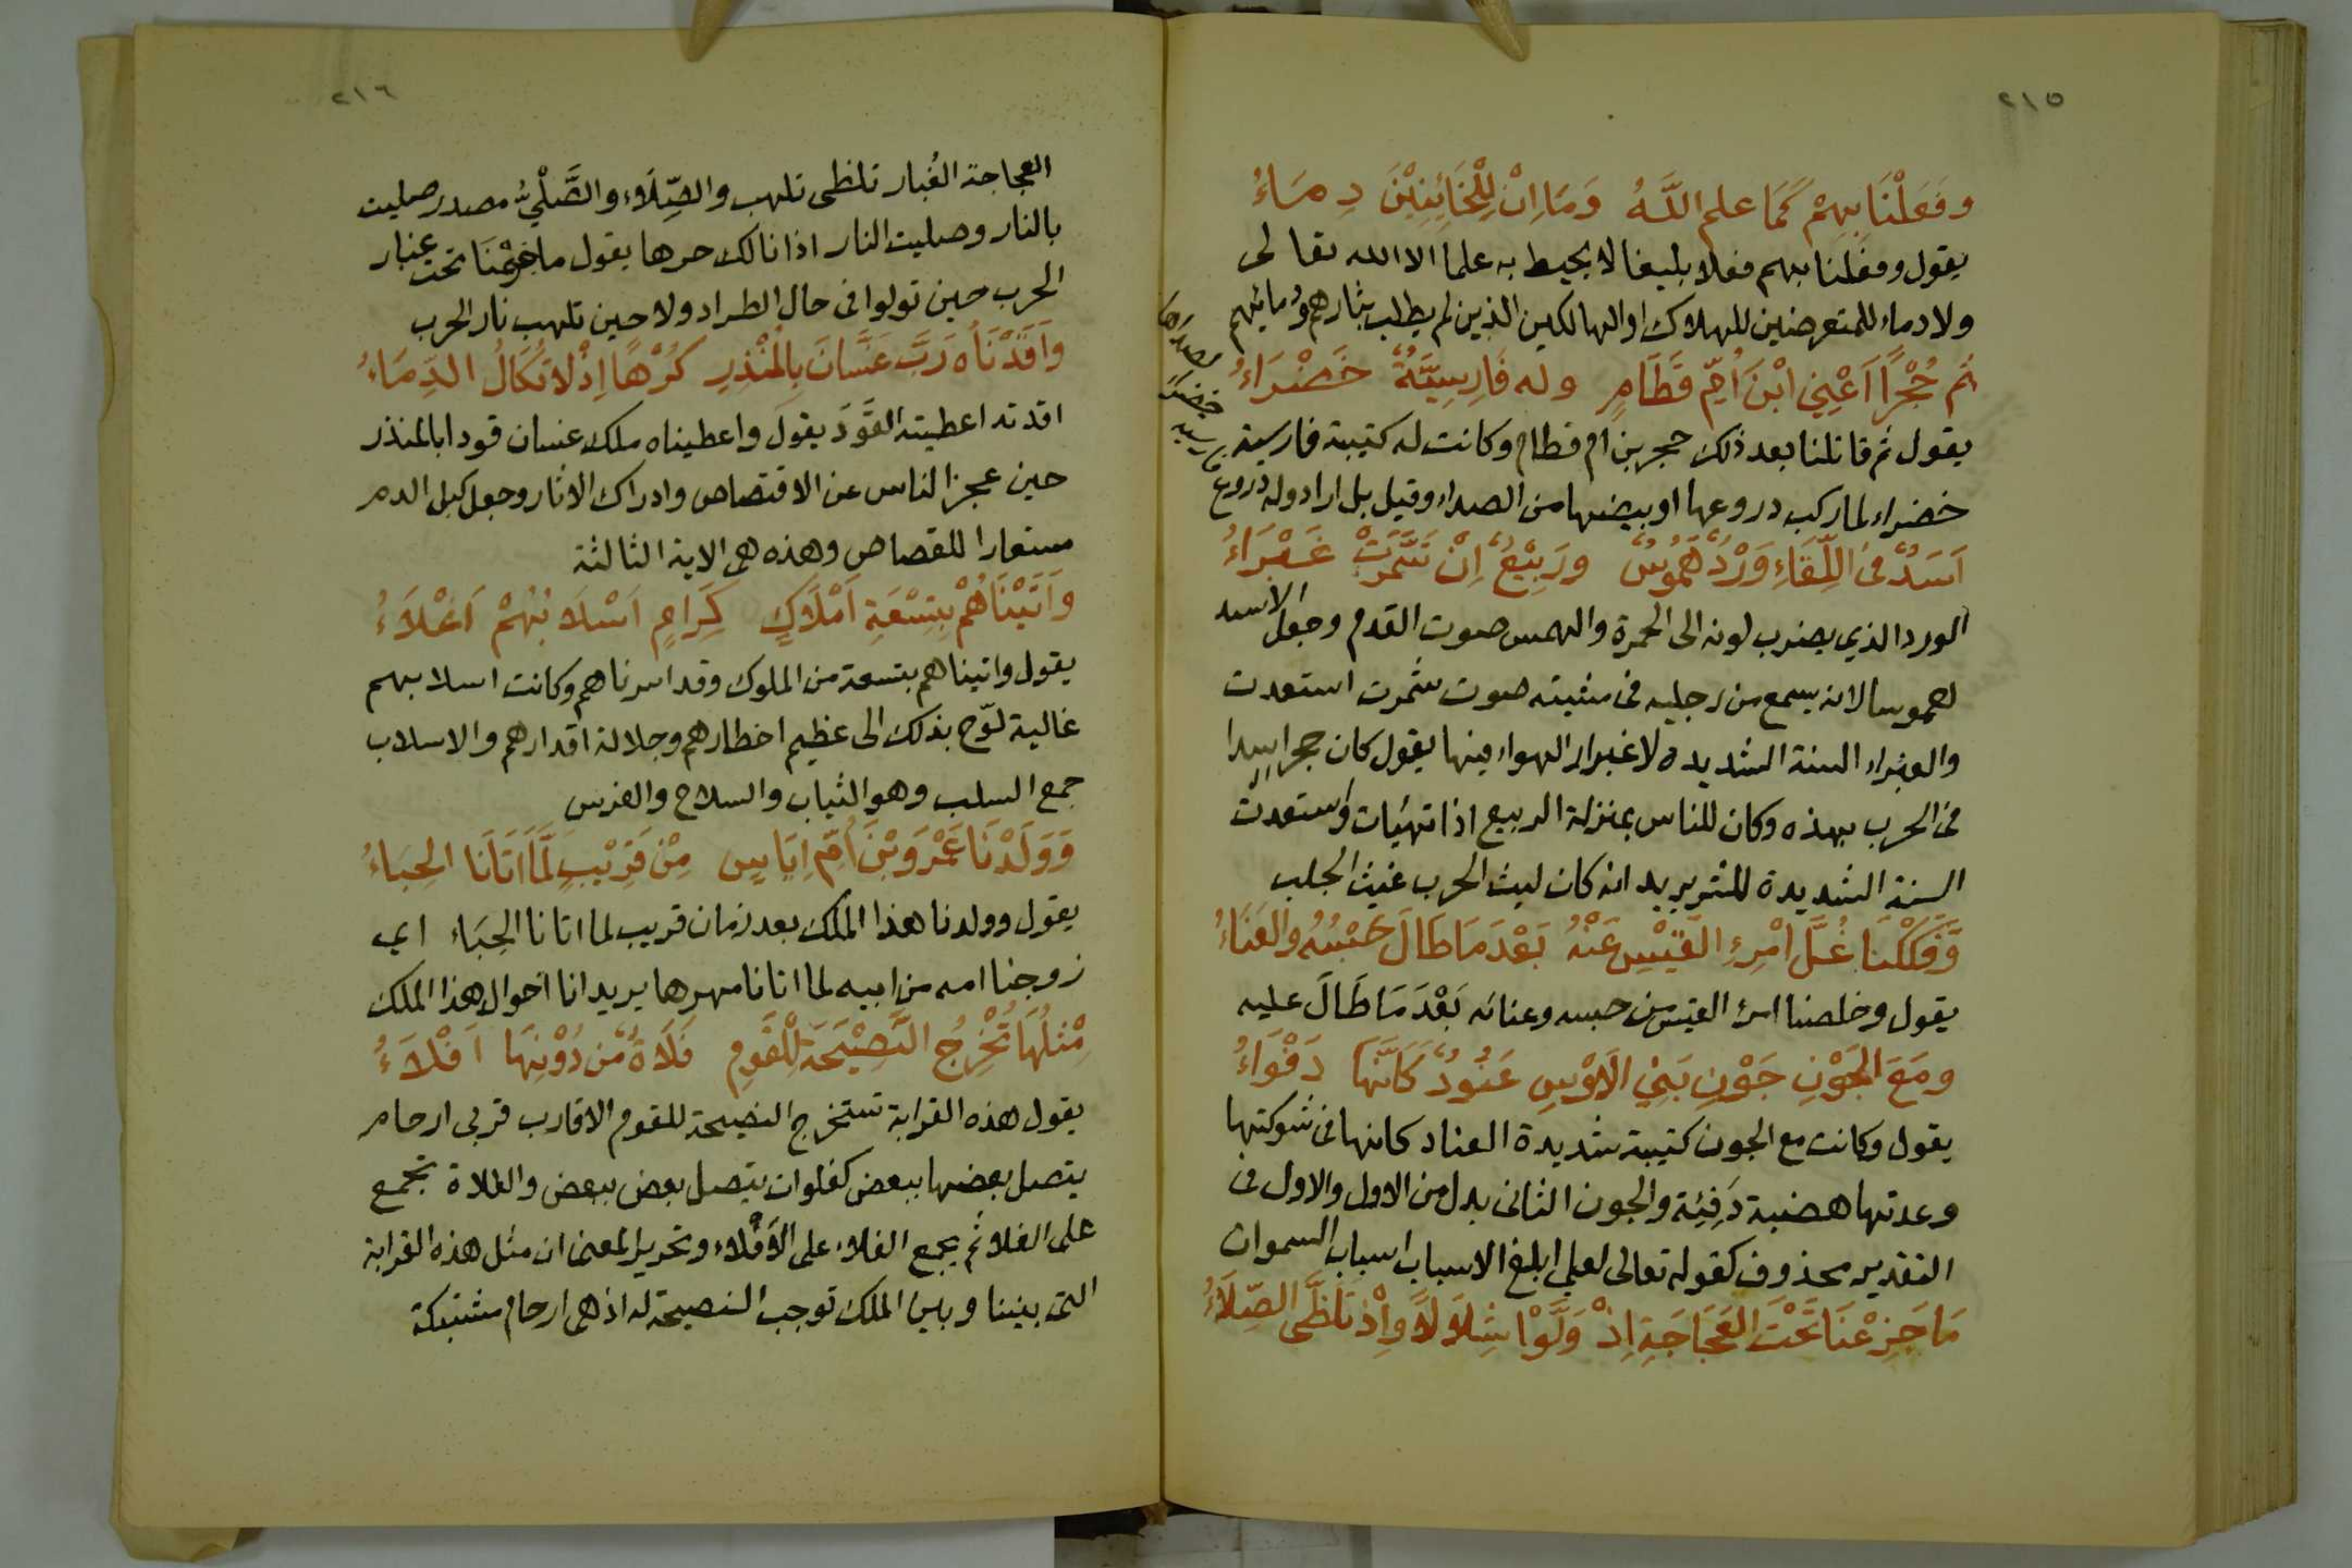 ٢١٥
وفَعَلْنَا بِهِمْ كَمَا علم اللَّهُ وَمَا اِنْ لِلْخَائِنِيْنَ دِمَاءُ
يقول وفعلنا بهم فعلا بليغا لا يحيط به علما الا الله تعالى
ولا دماء للمتعرضين للهلاك او الهالكين الذين لم يطلب بثارهم ودمائهم
ثم حُجْرًا اَعْنِي ابْنَ اُمِّ قَطَامٍ وله فَارِسِيَّةٌ خَضْرَاءُ
يقول ثم قاتلنا بعد ذلك حجر بن ام قطام وكانت له كتيبة فارسية
خضراء لما ركب دروعها او بيضها من الصداء وقيل بل اراد وله دروع
فارسية خضراء لصداها
اَسَدٌ في اللِّقَاءِ وَرْدٌ هَمُوسٌ ورَبِيْعٌ اِنْ شَمَّرَتْ غَبْرَاءُ
الورد الذي يضرب لونه الى الحمرة والهمس صوت القدم وجعل الاسد
هموسا لانه يسمع من رجليه في مشيته صوت شمرت استعدت
والغبراء السنة الشديدة لاغبرار الهواء فيها يقول كان حجر اسدا
في الحرب بهذه وكان للناس بمنزلة الربيع اذا تهيات واستعدت
السنة الشديدة للشر يريد انه كان ليث الحرب غيث الجلب
وَفَكَكْنَا غُلَّ امْرِئِ القَيْسِ عَنْهُ بَعْدَ مَا طَالَ حَبْسُهُ والعَنَاءُ
يقول وخلصنا امرء القيس من حبسه وعنائه بَعْدَ مَا طَالَ عليه
ومَعَ الجَوْنِ جَوْنِ بَنِي الاَوْسِ عَنُودٌ كَاَنَّهَا دَفْوَاءُ
يقول وكانت مع الجون كتيبة شديدة العناد كانها في شوكتها
وعدتها هضبة دَفِئَة والجون الثاني بدل من الاول والاول في
التقدير محذوف كقوله تعالى لعلي ابلغ الاسباب اسباب السموات
مَا جَزِعْنَا تَحْتَ العَجَاجَةِ اِذْ وَلَّوْا شِلَالًا وَاِذْ تَلَظَّى الصِّلَاءُ
٢١٦
العجاجة الغُبار تلظى تلهب والصِّلَاء والصَّلْيُ مصدر صليت
بالنار وصليت النار اذا نالك حرها يقول ما جزعنا تحت غبار
الحرب حين تولوا في حال الطراد ولا حين تلهب نار الحرب
وَاَقَدْنَاهُ رَبَّ غَسَّانَ بِالمُنْذِرِ كُرْهًا اِذْ لا تُكَالُ الدِّمَاءُ
اقدته اعطيته القَوَدَ يقول واعطيناه ملك غسان قودا بالمنذر
حين عجز الناس عن الاقتصاص وادراك الاثار وجعل كيل الدم
مستعارا للقصاص وهذه هي الاية الثالثة
وَاَتَيْنَاهُمْ بِتِسْعَةِ اَمْلَاكٍ كِرَامٍ اَسْلَابُهُمْ اَغْلَاءُ
يقول واتيناهم بتسعة من الملوك وقد اسرناهم وكانت اسلابهم
غالية لوّح بذلك الى عظيم اخطارهم وجلالة اقدارهم والاسلاب
جمع السلب وهو الثياب والسلاح والفرس
وَوَلَدْنَا عَمْرَو بْنَ اُمِّ اِيَاسٍ مِنْ قَرِيْبٍ لَمَّا اَتَانَا الحِبَاءُ
يقول وولدنا هذا الملك بعد زمان قريب لما اتانا الحِبَاء اي
زوجنا امه من ابيه لما اتانا مهرها يريد انا اخوال هذا الملك
مِثْلُهَا تُخْرِجُ النَّصِيْحَةَ لِلْقَوْمِ فَلَاةٌ مِّنْ دُوْنِهَا اَفْلَاءُ
يقول هذه القرابة تستخرج النصيحة للقوم الاقارب قربى ارحام
يتصل بعضها ببعض كفلوات يتصل بعض ببعض والفلاة تجمع
على الفلا ثم يجمع الفلاء على الاَفْلَاء وتحرير المعنى ان مثل هذه القرابة
التي بيننا وبين الملك توجب النصيحة له اذ هي ارحام مشتبكة